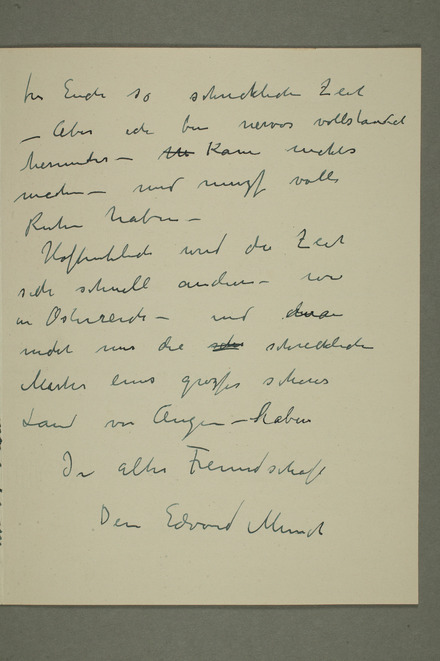 zu Ende so schreckliche Zeit
– Aber ich bin nervos vollstandid
herunter – Kann nichts
machen – und muzf volle
Ruhe haben –
Hoffentlich wird die Zeit
sich schnell andern – wie
in Osterreich – und
nicht nur die schreckliche
Marter eines grozfes schones
Land vor Augen – haben
In alter Freundschaft
Dein Edvard Munch